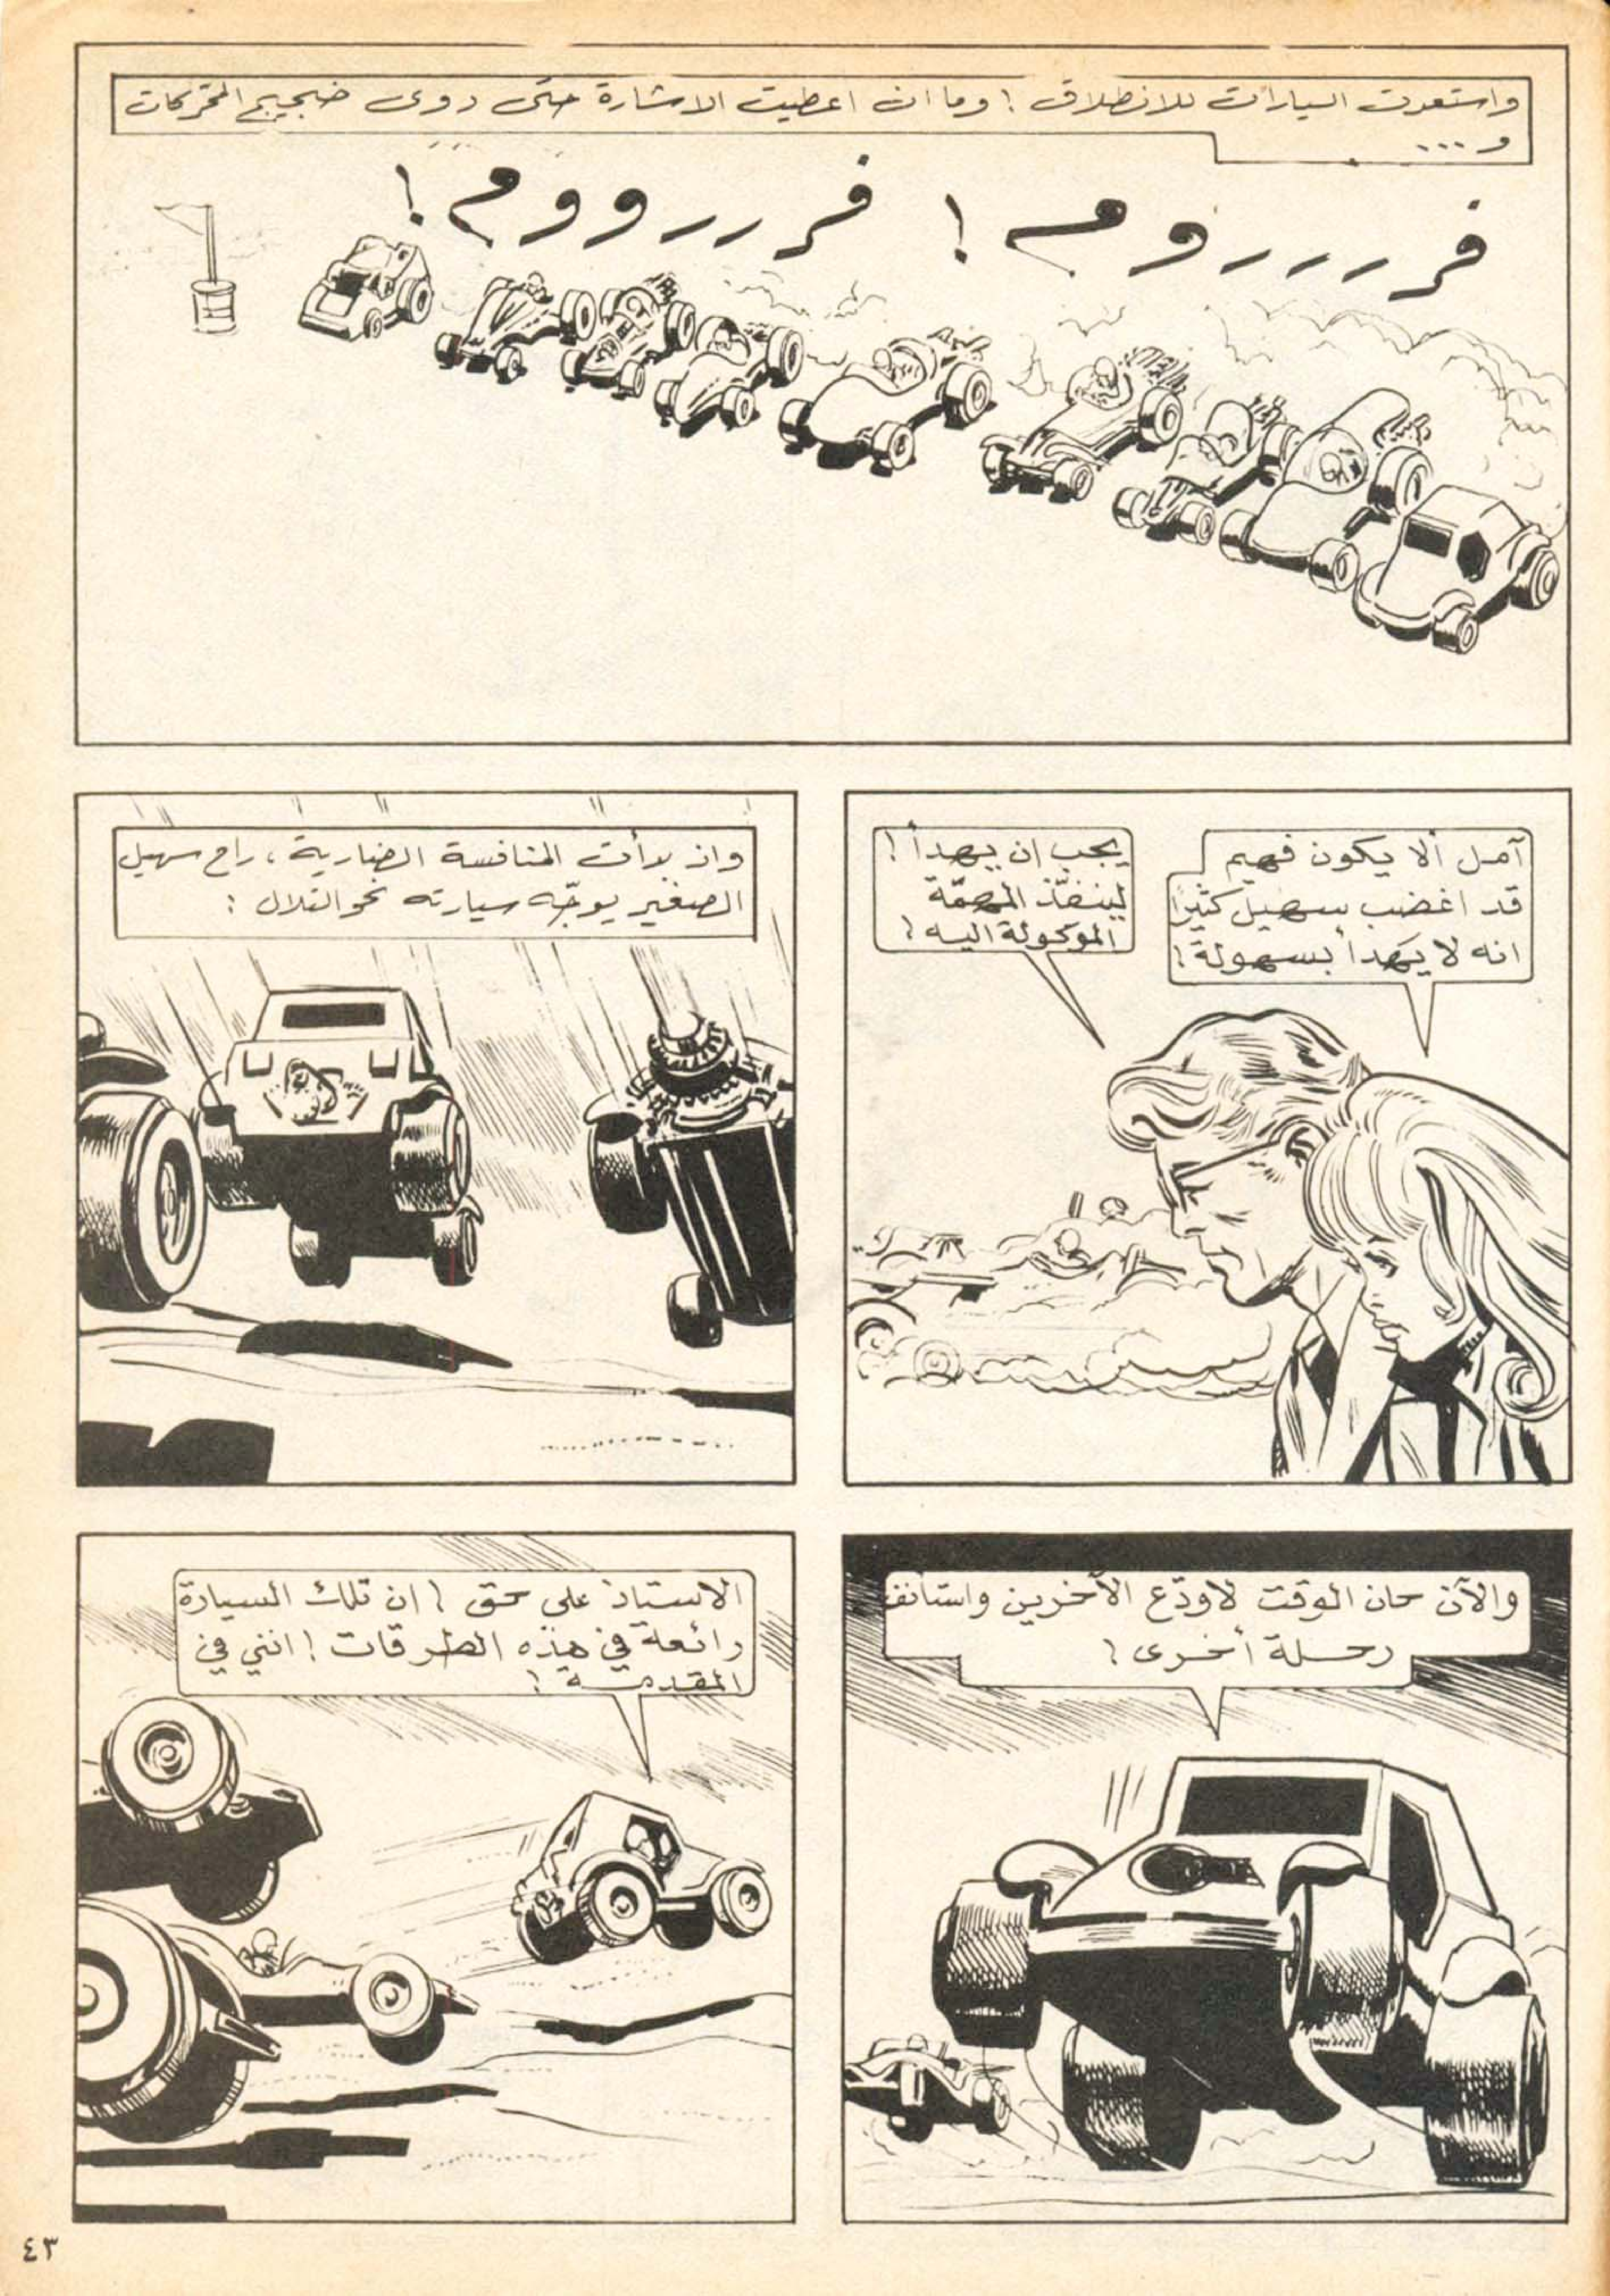 واستعدت السيارات للانطلاق ! وما ان اعطيت الاشارة حتى دوى ضجيج المحركات
و ...
فررررووم ! فرررووم !
آمل ألا يكون فهيم
قد اغضب سهيل كثيرًا
انه لا يهدأ بسهولة !
يجب ان يهدأ !
لينفّذ المهمّة
الموكولة اليه !
واذ بدأت المنافسة الضارية ، راح سهيل
الصغير يوجّه سيارته نحو التلال :
والآن حان الوقت لاودّع الآخرين واستأنف
رحلة أخرى !
الاستاذ على حق ! ان تلك السيارة
رائعة في هذه الطرقات ! انني في
المقدمة !
٤٣